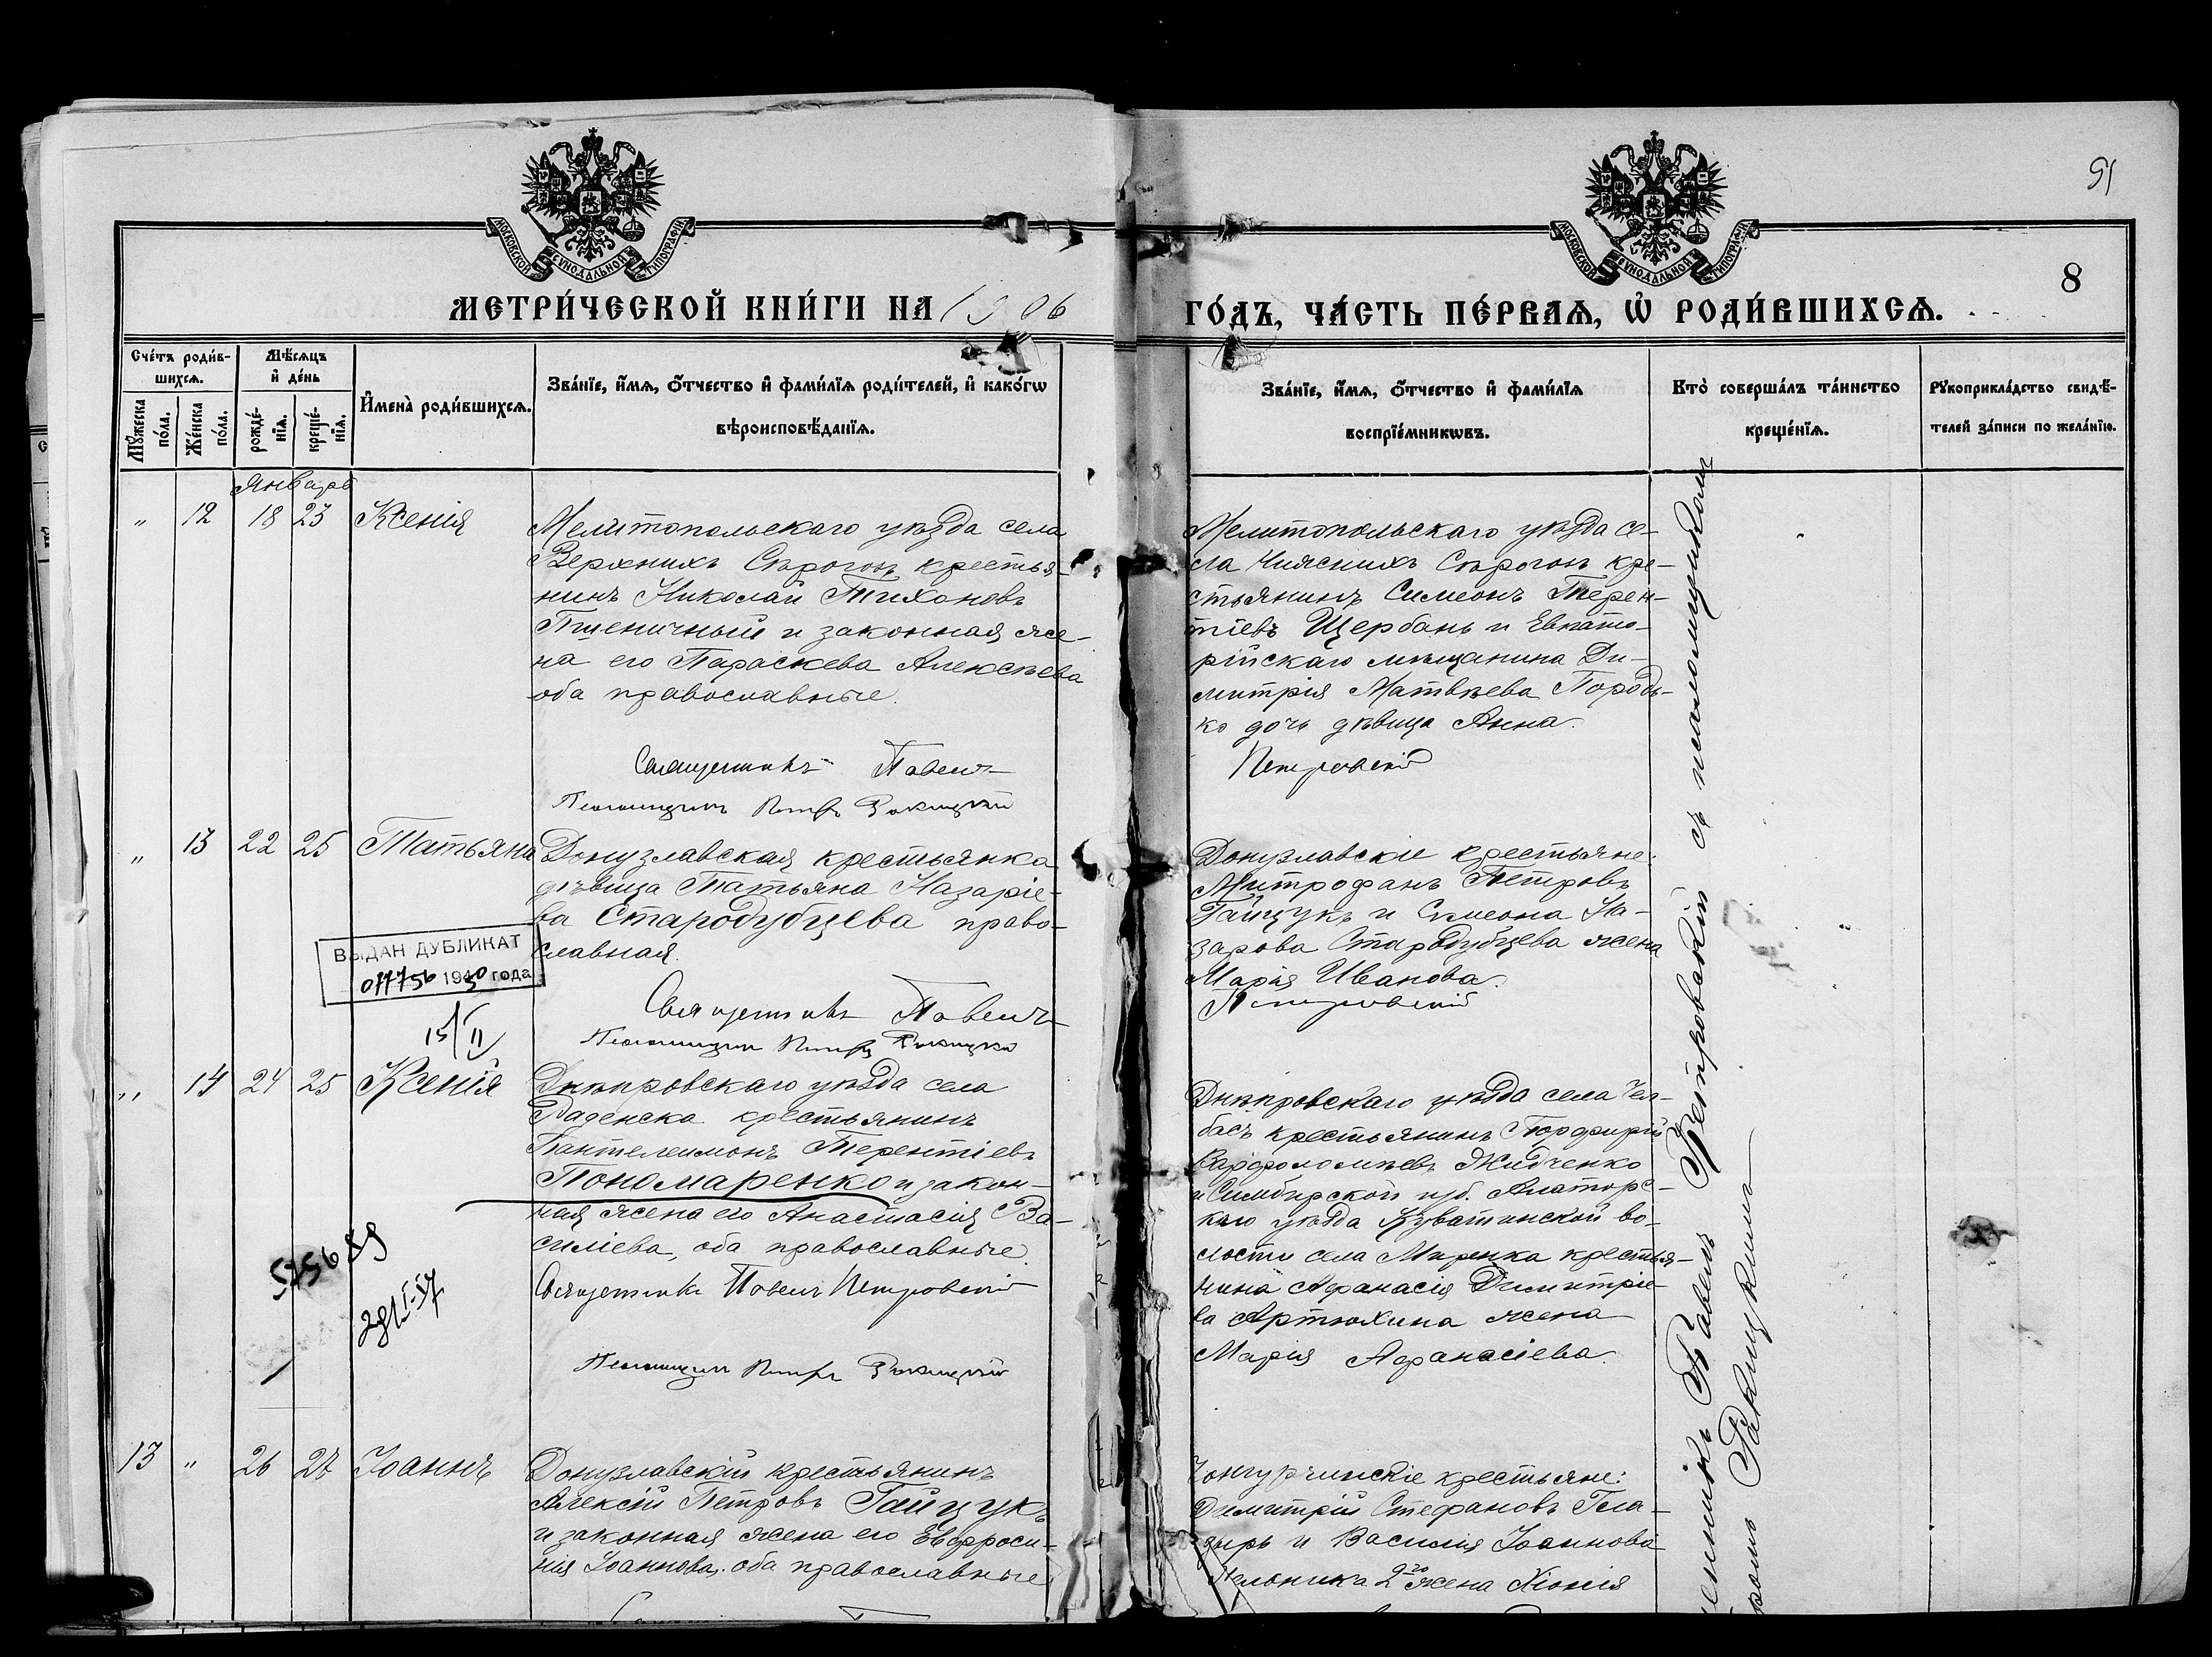 МОСКОВСКОЙ СѴНОДАЛЬНОЙ ТИПОГРАФІИ
МОСКОВСКОЙ СѴНОДАЛЬНОЙ ТИПОГРАФІИ
91
8
МЕТРИ́ЧЕСКОЙ КНИ́ГИ НА 1906
ГО́ДЪ, ЧА́СТЬ ПЕ́РВАѦ, Ѽ РОДИ́ВШИХСѦ.
Сче́тъ роди́в-
шихсѧ.
Мѣ́сяцъ
и҆ де́нь
Мꙋ́жеска
по́ла.
Же́нска
по́ла.
рожде́-
нїѧ.
креще́-
нїѧ.
И҆мена̀ роди́вшихсѧ.
Зва́нїе, и҆́мѧ, ѻ҆́тчество и҆ фами́лїѧ роди́телей, и҆ како́гѡ
вѣроисповѣ́данїѧ.
Зва́нїе, и҆́мѧ, ѻ҆́тчество и҆ фами́лїѧ
воспрїе́мникѡвъ.
Кто̀ соверша́лъ та́инство
креще́нїѧ.
Рꙋкоприкла́дство свидѣ́-
телей за́писи по жела́нїю.
Январь
" 12 18 23 Ксенія
Мелитопольскаго уѣзда села
Верхнихъ Сѣрогозъ крестья-
нинъ Николай Тихоновъ
Пшеничный и законная же-
на его Параскева Алексѣева
оба православные.
Священникъ Павелъ
Псаломщикъ Петръ Ракицкій
Мелитопольскаго уѣзда се-
ла Нижнихъ Сѣрогозъ кре-
стьянинъ Симеонъ Терен-
тіевъ Щербань и Евпато-
рійскаго мѣщанина Ди-
митрія Матвѣева Породь-
ко дочь дѣвица Анна.
Петровскій
" 13 22 25 Татьяна
Донузлавская крестьянка
дѣвица Татьяна Назаріе-
ва Стародубцева право-
славная.
Священникъ Павелъ
Псаломщикъ Петръ Ракицкій
Донузлавскіе крестьяне:
Митрофанъ Петровъ
Гайцукъ и Симеона На-
зарова Стародубцева жена
Марія Иванова.
Петровскій
ВЫДАН ДУБЛИКАТ
077756 1950 года
15/II
" 14 24 25 Ксенія
Днѣпровскаго уѣзда села
Раденска крестьянинъ
Пантелеимонъ Терентіевъ
Пономаренко и закон-
ная жена его Анастасія Ва-
силіева, оба православные.
Священникъ Павелъ Петровскій
Псаломщикъ Петръ Ракицкій
Днѣпровскаго уѣзда села Чел-
басъ крестьянинъ Порфирій
Варфоломѣевъ Жидченко
и Симбирской губ. Алаторс-
каго уѣзда Куватинской во-
лости села Миренка крестья-
нина Афанасія Димитріе-
ва Артюхина жена
Марія Афанасіева.
13 " 26 27 Іоаннъ
Донузлавскій крестьянинъ
Алексій Петровъ Гайцукъ
и законная жена его Евфроси-
нія Іоаннова, оба православные
Чонгурчинскіе крестьяне:
Димитрій Стефановъ Гла-
дырь и Василія Іоаннова
Мельника 2го жена Хіонія
Павелъ Петровскій съ псаломщикомъ
Ракицкимъ